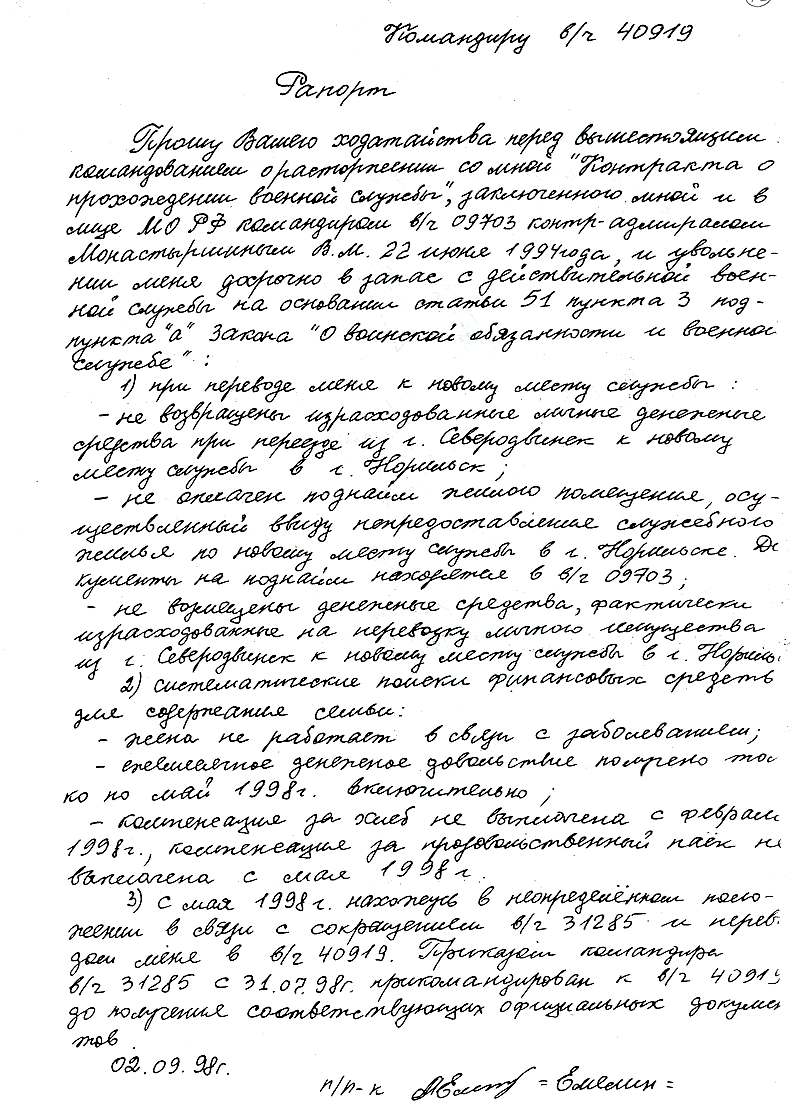 Командиру в/ч 40919
Рапорт
Прошу Вашего ходатайства перед вышестоящим
командованием о расторжении со мной "Контракта о
прохождении военной службы", заключенного мной и в
лице МО РФ командиром в/ч 09703 контр-адмиралом
Монастыршиным В.М. 22 июня 1994 года, и увольне-
нии меня досрочно в запас с действительной воен-
ной службы на основании статьи 51 пункта 3 под-
пункта "а" Закона "О воинской обязанности и военной
службе" :
1) при переводе меня к новому месту службы :
- не возвращены израсходованные личные денежные
средства при переезде из г. Северодвинск к новому
месту службы в г. Норильск;
- не оплачен поднайм жилого помещения, осу-
ществленный ввиду непредоставления служебного
жилья по новому месту службы в г. Норильске. До
кументы на поднайм находятся в в/ч 09703;
- не возмещены денежные средства, фактически
израсходованные на перевозку личного имущества
из г. Северодвинск к новому месту службы в г. Нориль
2) систематические поиски финансовых средств
для содержания семьи:
- жена не работает в связи с заболеванием;
- ежемесячное денежное довольствие получено тол
ко по май 1998г. включительно;
- компенсация за хлеб не выплачена с феврал
1998г., компенсация за продовольственный паек не
выплачена с мая 1998г.
3) с мая 1998г. нахожусь в неопределённом поло-
жении в связи с сокращением в/ч 31285 и перев
дом меня в в/ч 40919. Приказом командира
в/ч 31285 с 31.07.98г. прикомандирован к в/ч 40919
до получения соответствующих официальных докумен
тов
02.09.98г.
п/п-к = Емелин =